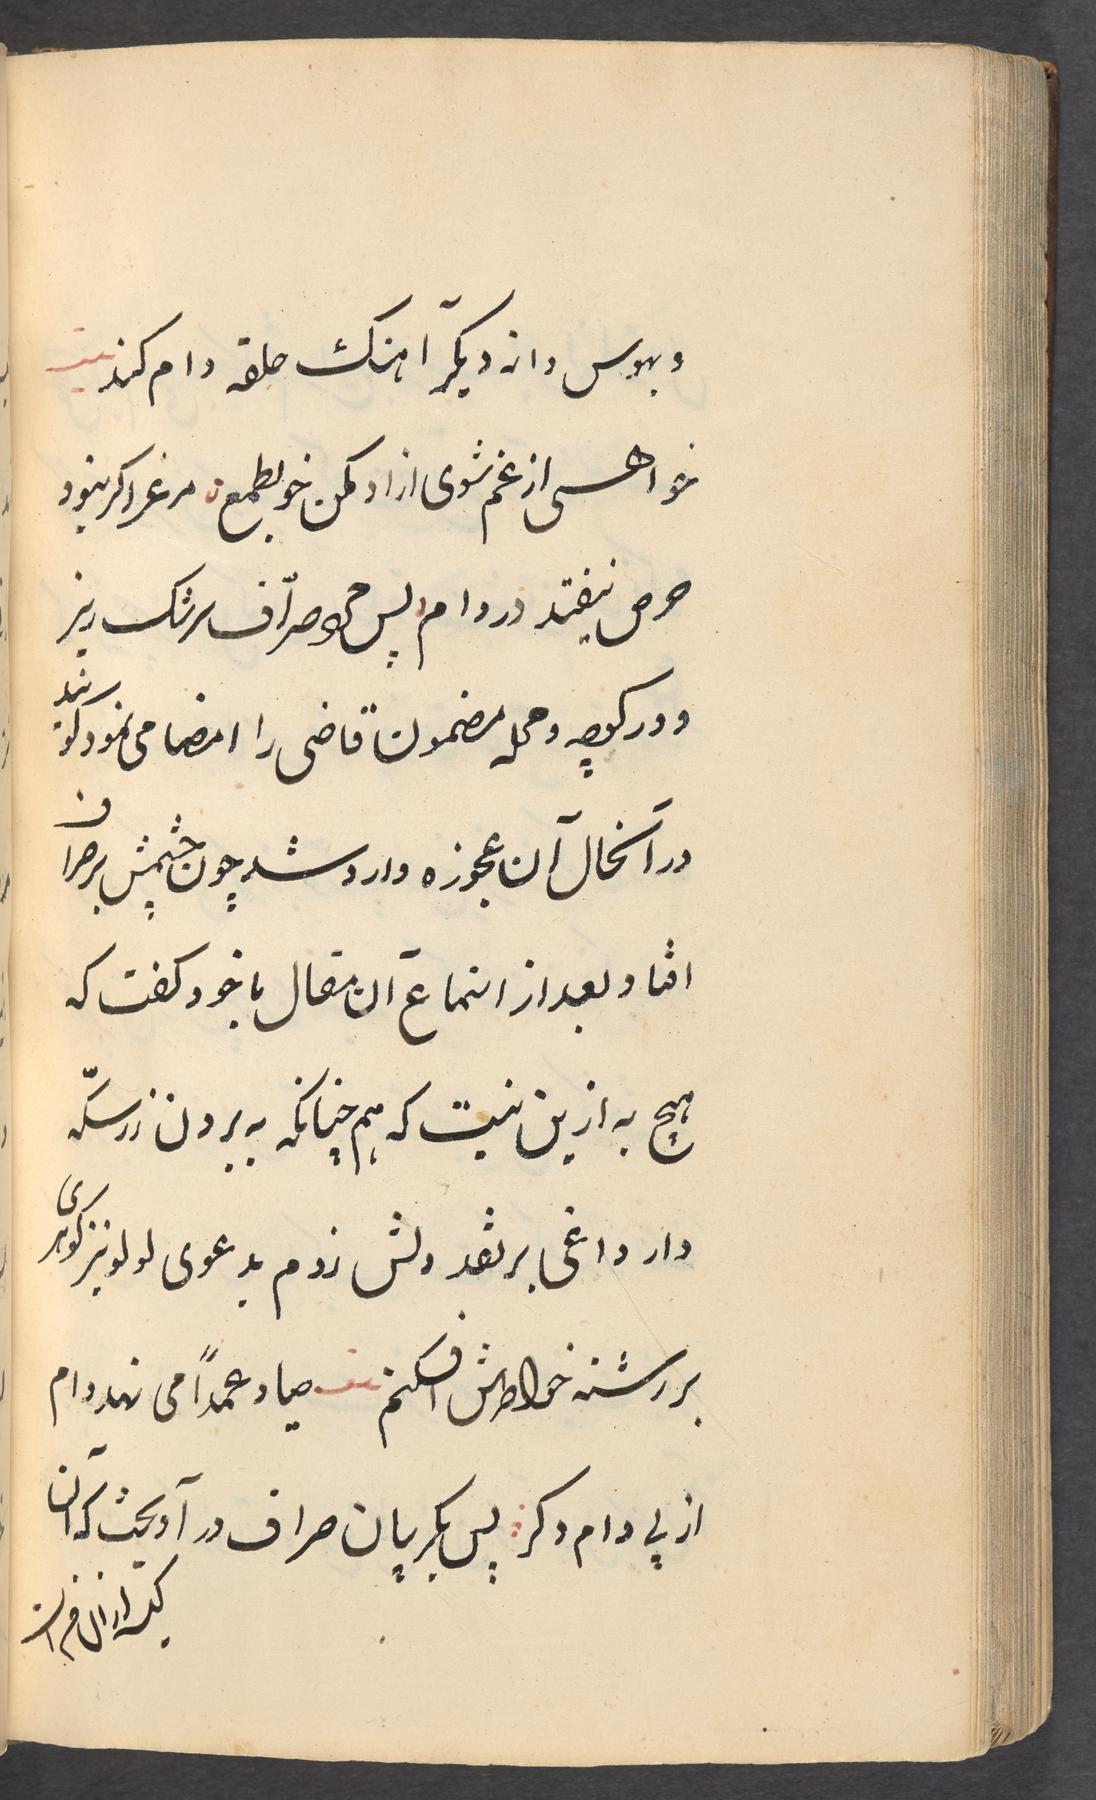 و بهوس دانه دیکر آهنک حلقه دام کند بیت
خواهسی از غم شوی ازاد مکن خو بطمع مرغ را کر نبود
حرص نیفتد در دام پس صراف سرشک ریز
و در کوچه و محله مضمون قاضی را امضا می نمود که شد
در آنحال آن عجوزه وارد شد چون چشمش بر صراف
افتاد بعد از استماع آن مقال با خود کفت که
هیچ به ازین نیست که هم چنانکه به بردن زر سکّه
دار داغی بر نقد دلش زدم بدعوی لولو نیز کوهری
بر رشته خواطرش افکنم بیت صیاد عمداً می نهد دام
از پی دام دکر پس بکریبان صراف در آویخت که آن
کیسه از آن من است